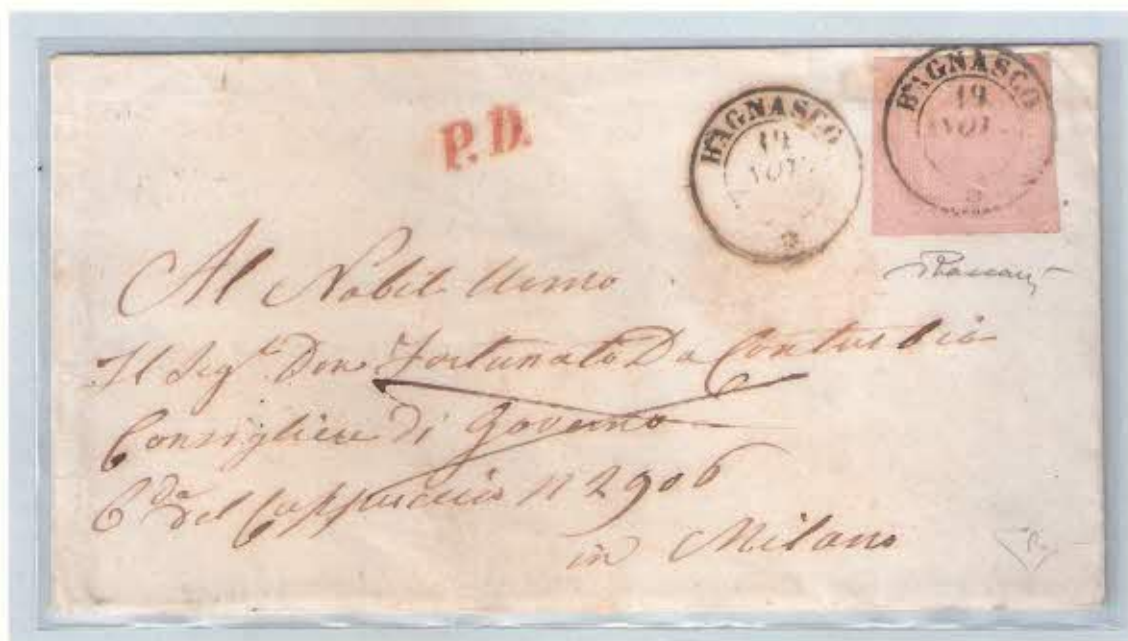 P.D.
BAGNASCO
19
NOV.
3
BAGNASCO
19
NOV.
3
Al Nobil Uomo
Il Sig.r Don Fortunato Da Conturbia
Consigliere di Governo
C.da del Cappuccio N 2906
in Milano